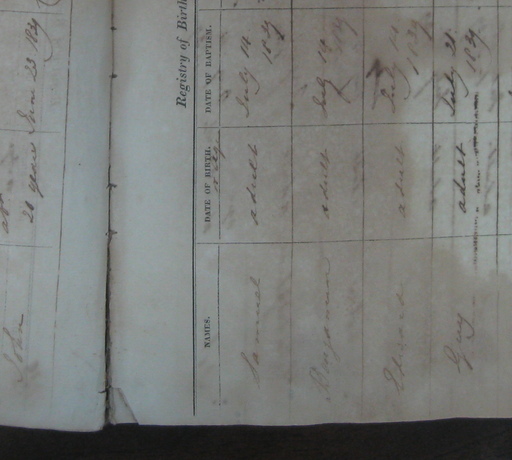 John
abt
20 years June 23 1839
Registry of Birth
NAMES. DATE OF BIRTH. DATE OF BAPTISM.
or age
Samuel adult July 14
1839
Benjamin adult July 14
1839
Edward adult July 14
1839
Guy adult July 21
1839